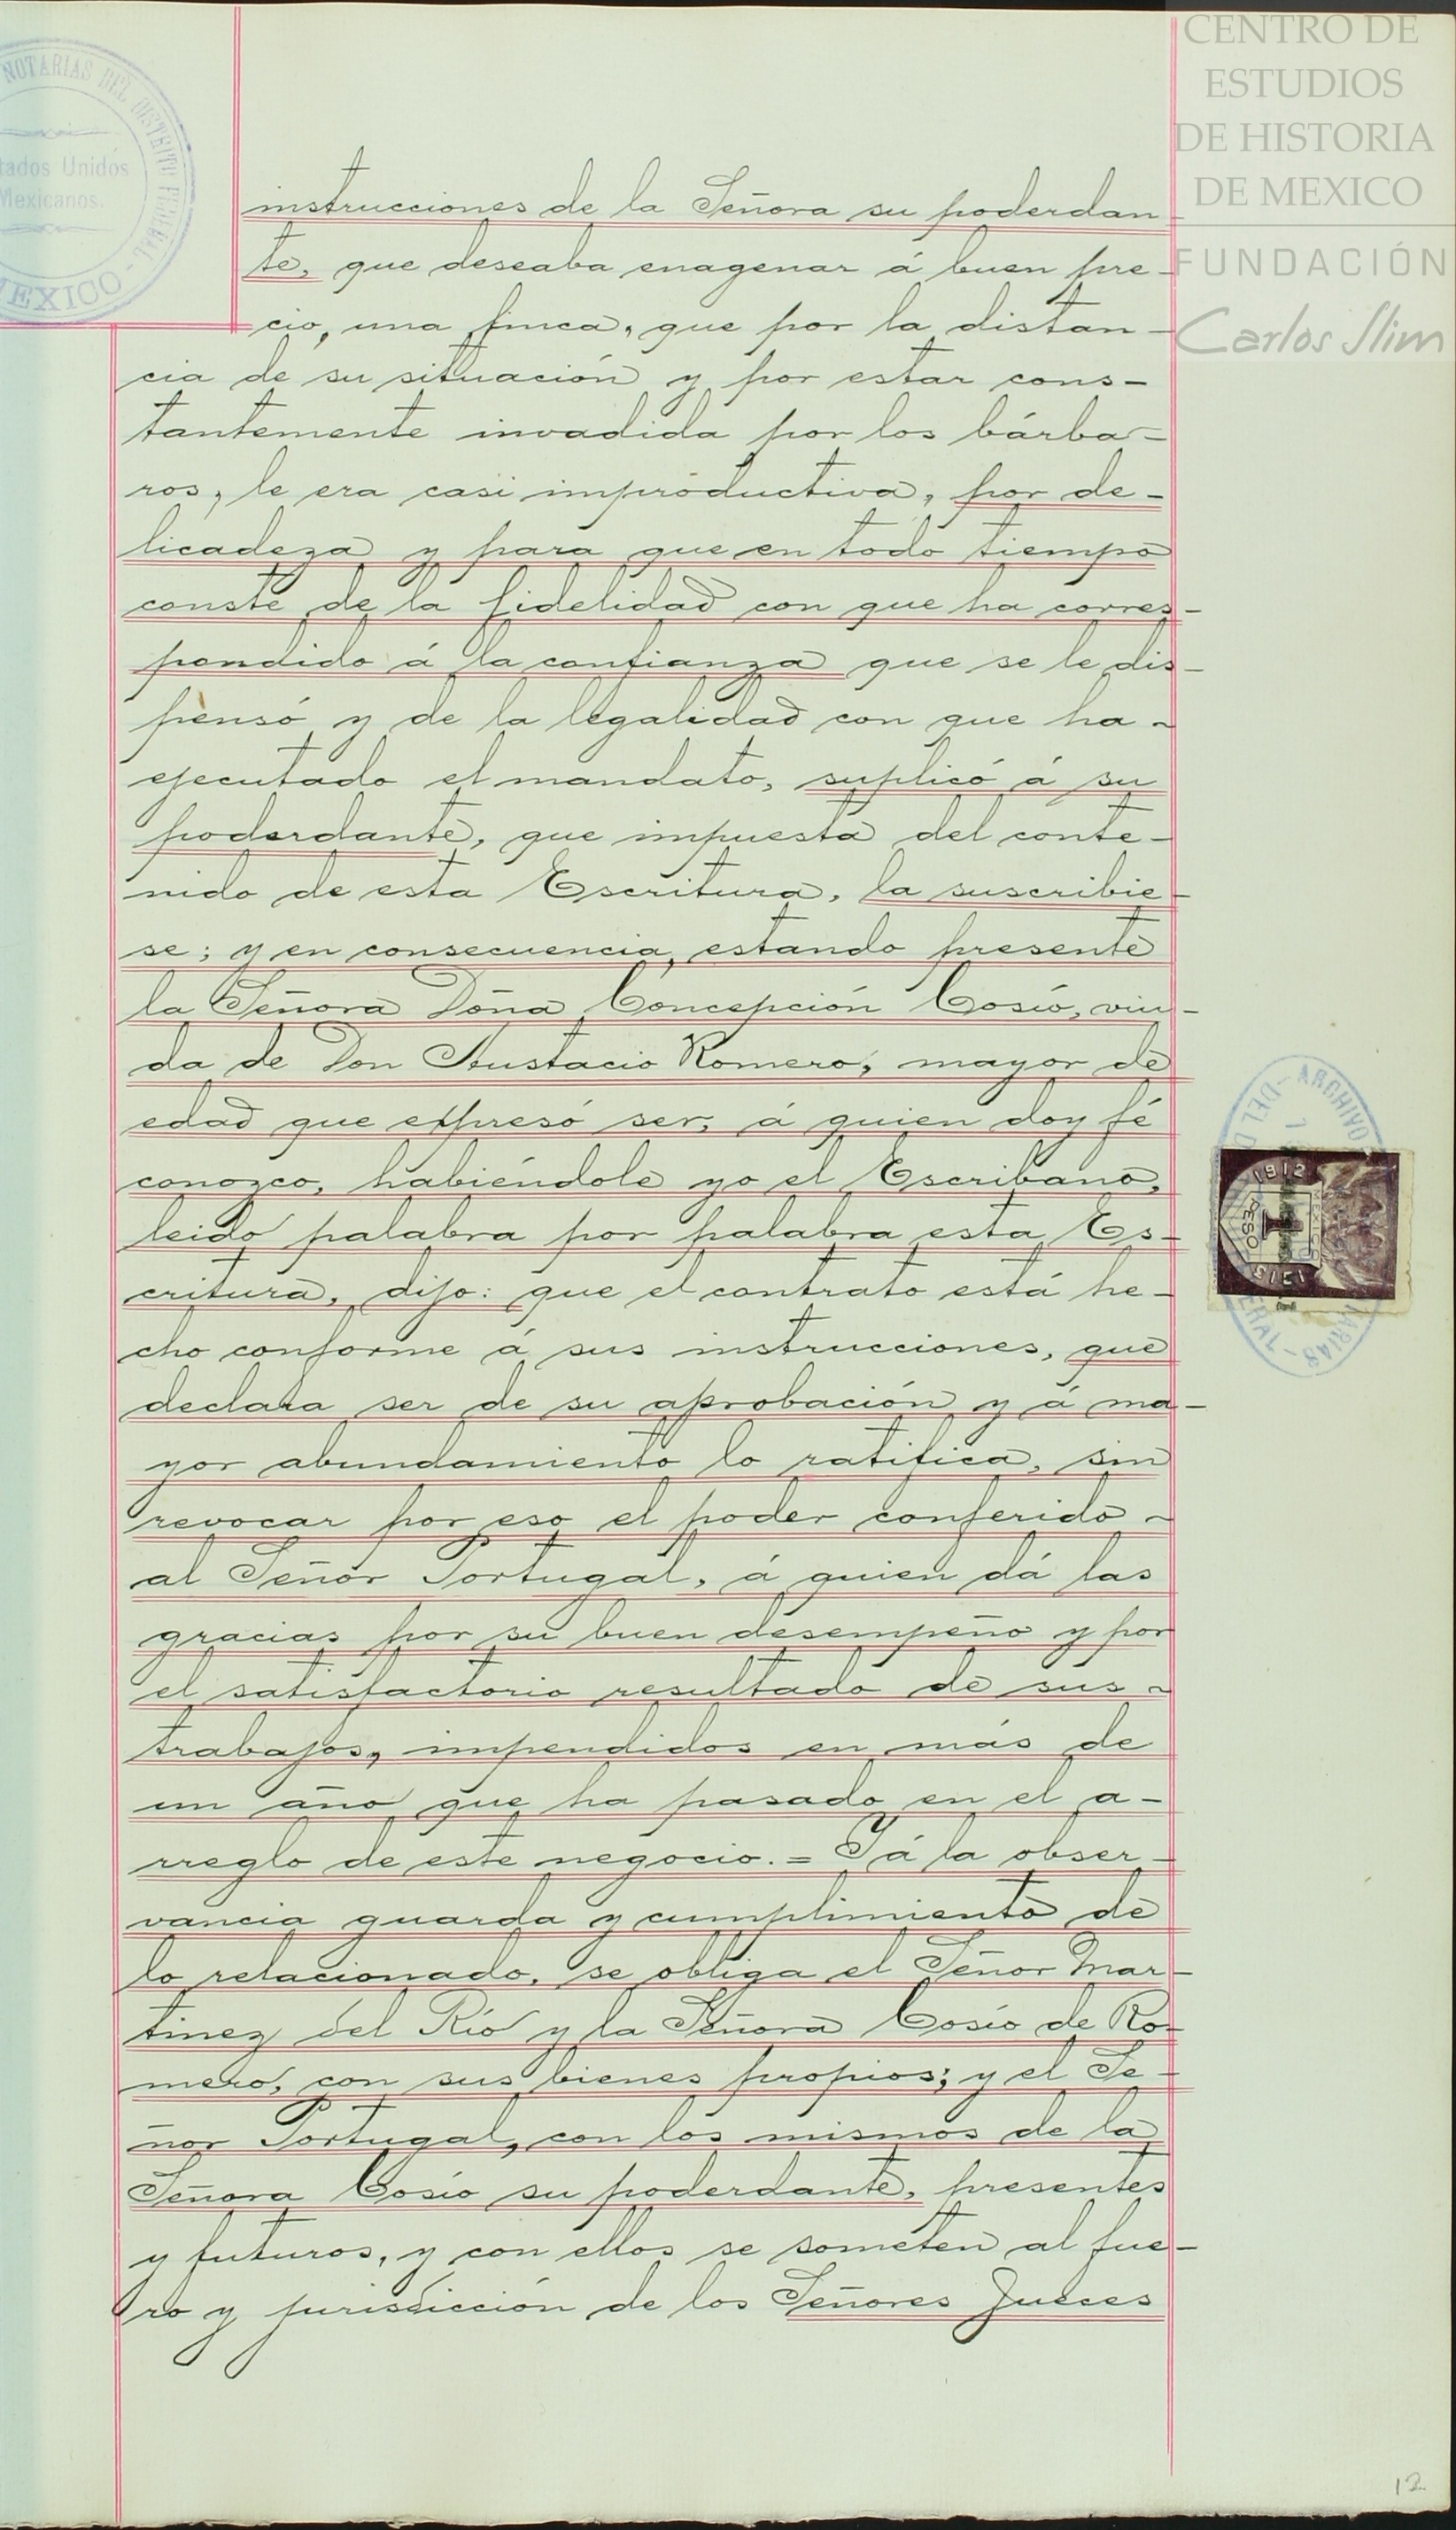 CENTRO DE
ESTUDIOS
DE HISTORIA
DE MEXICO
FUNDACIÓN
Carlos Slim
NOTARIAS DEL DISTRITO FEDERAL -
tados Unidos
Mexicanos.
MEXICO -
instrucciones de la Señora su poderdan
te, que deseaba enagenar á buen pre-
cio, una finca, que por la distan-
cia de su situación y por estar cons-
tantemente invadida por los bárba-
ros, le era casi improductiva, por de-
licadeza y para que en todo tiempo
conste de la fidelidad con que ha corres-
pondido á la confianza que se le dis-
pensó y de la legalidad con que ha -
ejecutado el mandato, suplicó á su
poderdante, que impuesta del conte-
nido de esta Escritura, la suscribie-
se; y en consecuencia, estando presente
la Señora Doña Concepción Cosío, viu-
da de Don Austacio Romero, mayor de
edad que expresó ser, á quien doy fé
conozco, habiéndole yo el Escribano,
leido palabra por palabra esta Es-
critura, dijo: que el contrato está he-
cho conforme á sus instrucciones, que
declara ser de su aprobación y á ma-
yor abundamiento lo ratifica, sin
revocar por eso el poder conferido -
al Señor Portugal, á quien dá las
gracias por su buen desempeño y por
el satisfactorio resultado de sus -
trabajos, impendidos en más de
un año que ha pasado en el a-
rreglo de este negocio. = Y á la obser-
vancia guarda y cumplimiento de
lo relacionado, se obliga el Señor Mar-
tinez del Río y la Señora Cosío de Ro-
mero, con sus bienes propios; y el Se-
ñor Portugal, con los mismos de la
Señora Cosío su poderdante, presentes
y futuros, y con ellos se someten al fue-
ro y jurisdicción de los Señores Jueces
ARCHIVO
DEL D
ERAL -
TARIAS
1912
1913
MEXICO
PESO
12